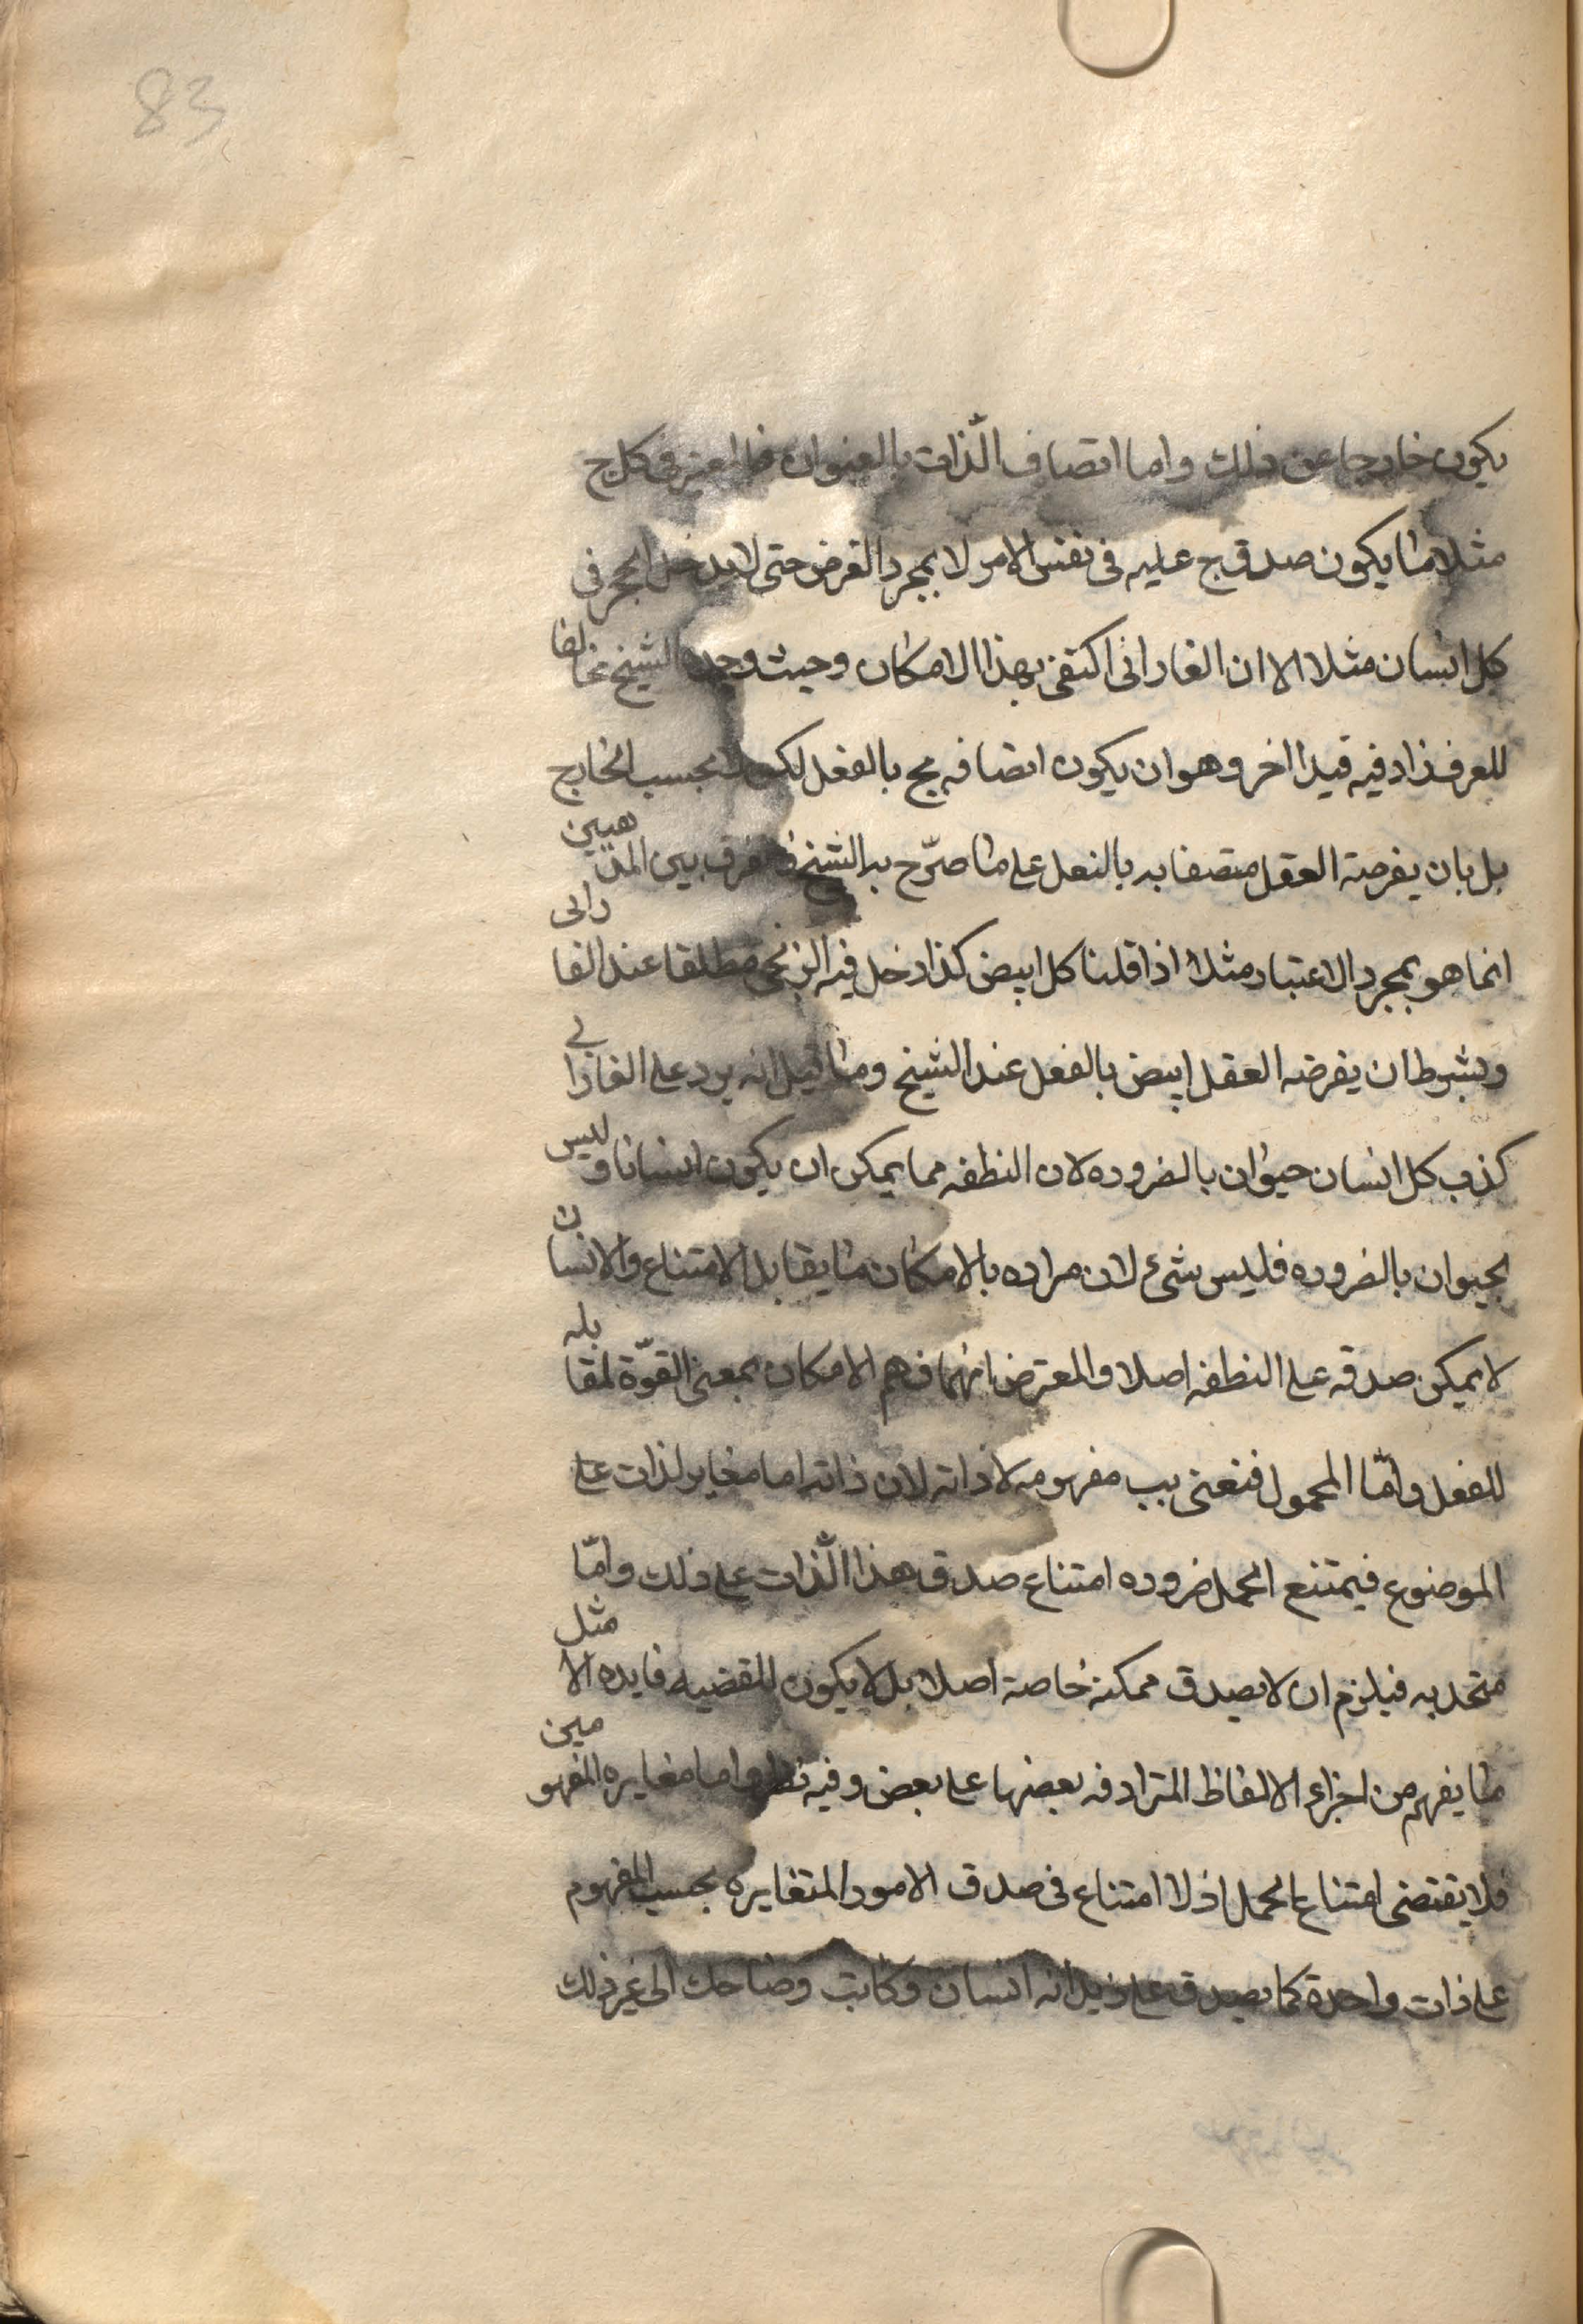 83
يكون خارجا عن ذلك واما اتصاف الذات بالعنوان فالمعتبر فى كل ج
مثلا ما يكون صدق ج عليه فى نفس الامر لا بمجرد الفرض حتى لا يدخل الحجر فى
كل انسان مثلا الا ان الفارابى اكتفى بهذا الامكان وحيث وجده الشيخ مخالفا
للعرف زاد فيه قيدا اخر وهو ان يكون اتصافه بج بالفعل لكن لا بحسب الخارج
بل بان يفرضه العقل متصفا به بالفعل على ما صرّح به الشيخ فالفرق بين المذهبين
انما هو بمجرد الاعتبار مثلا اذا قلنا كل ابيض كذا دخل فيه الزنجى مطلقا عند الفارابى
وبشرط ان يفرضه العقل ابيض بالفعل عند الشيخ وما قيل انه يرد على الفارابى
كذب كل انسان حيوان بالضروره لان النطفه مما يمكن ان يكون انسانا وليس
بحيوان بالضروره فليس بشىء لان مراده بالامكان ما يقابل الامتناع والانسان
لا يمكن صدقه على النطفه اصلا والمعترض انما فهم الامكان بمعنى القوّة المقابله
للفعل وامّا المحمول فنعنى بب مفهومه لا ذاته لان ذاته اما مغاير لذات على
الموضوع فيمتنع الحمل ضروره امتناع صدق هذا الذات على ذلك وامّا
متحد به فيلزم ان لا يصدق ممكنة خاصة اصلا بل لا يكون للقضيه فايده الا مثل
ما يفهم من اجزاء الالفاظ المترادفه بعضها على بعض وفيه نظر واما مغايره المفهومين
فلا يقتضى امتناع الحمل اذ لا امتناع فى صدق الامور المتغايره بحسب المفهوم
على ذات واحدة كما يصدق على زيد انه انسان وكاتب وضاحك الى غير ذلك